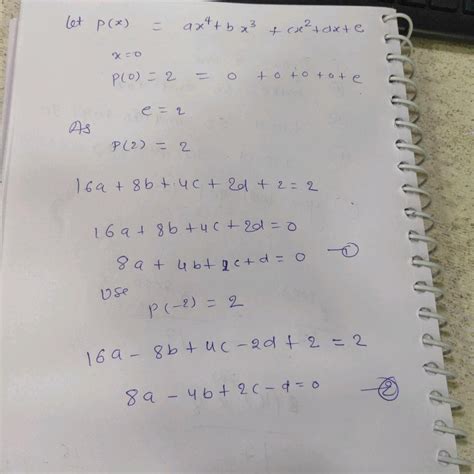 let p(x) = ax⁴ + bx³ + cx² + dx + e
x=0
p(0) = 2 = 0 + 0 + 0 + 0 + e
e = 2
As
p(2) = 2
16a + 8b + 4c + 2d + 2 = 2
16a + 8b + 4c + 2d = 0
8a + 4b + 2c + d = 0 —①
Use
p(-2) = 2
16a - 8b + 4c - 2d + 2 = 2
8a - 4b + 2c - d = 0 —②